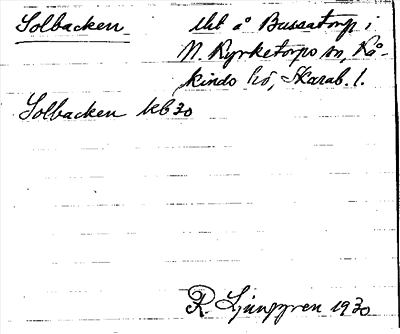 Solbacken
Ubt å Bussatorp i
N. Kyrketorps sn, Kå-
kinds hd, Skarab. l.
Solbacken kb 30
R. Ljunggren 1930